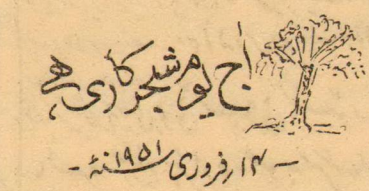 آج یوم شجر کاری ہے
۱۴ ار فروری ۱۹۵۱ سنہ